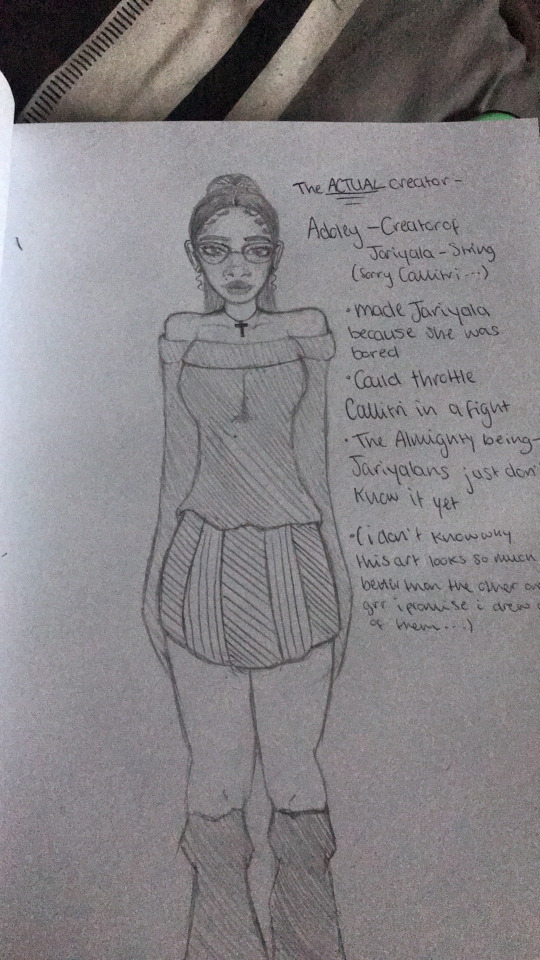 The ACTUAL creator-
Adoley - Creator of
Jariyala - String
(Sorry Callitri...)
•made Jariyala
because she was
bored
•Could throttle
Callitri in a fight
•The Almighty being-
Jariyalans just don'
know it yet
•(i don't know why
this art looks so much
better than the other
grr i promise i drew
of them...)